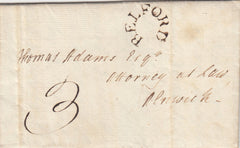 BELFORD
Thomas Adams Esqr.
Attorney at Law
Alnwick
3